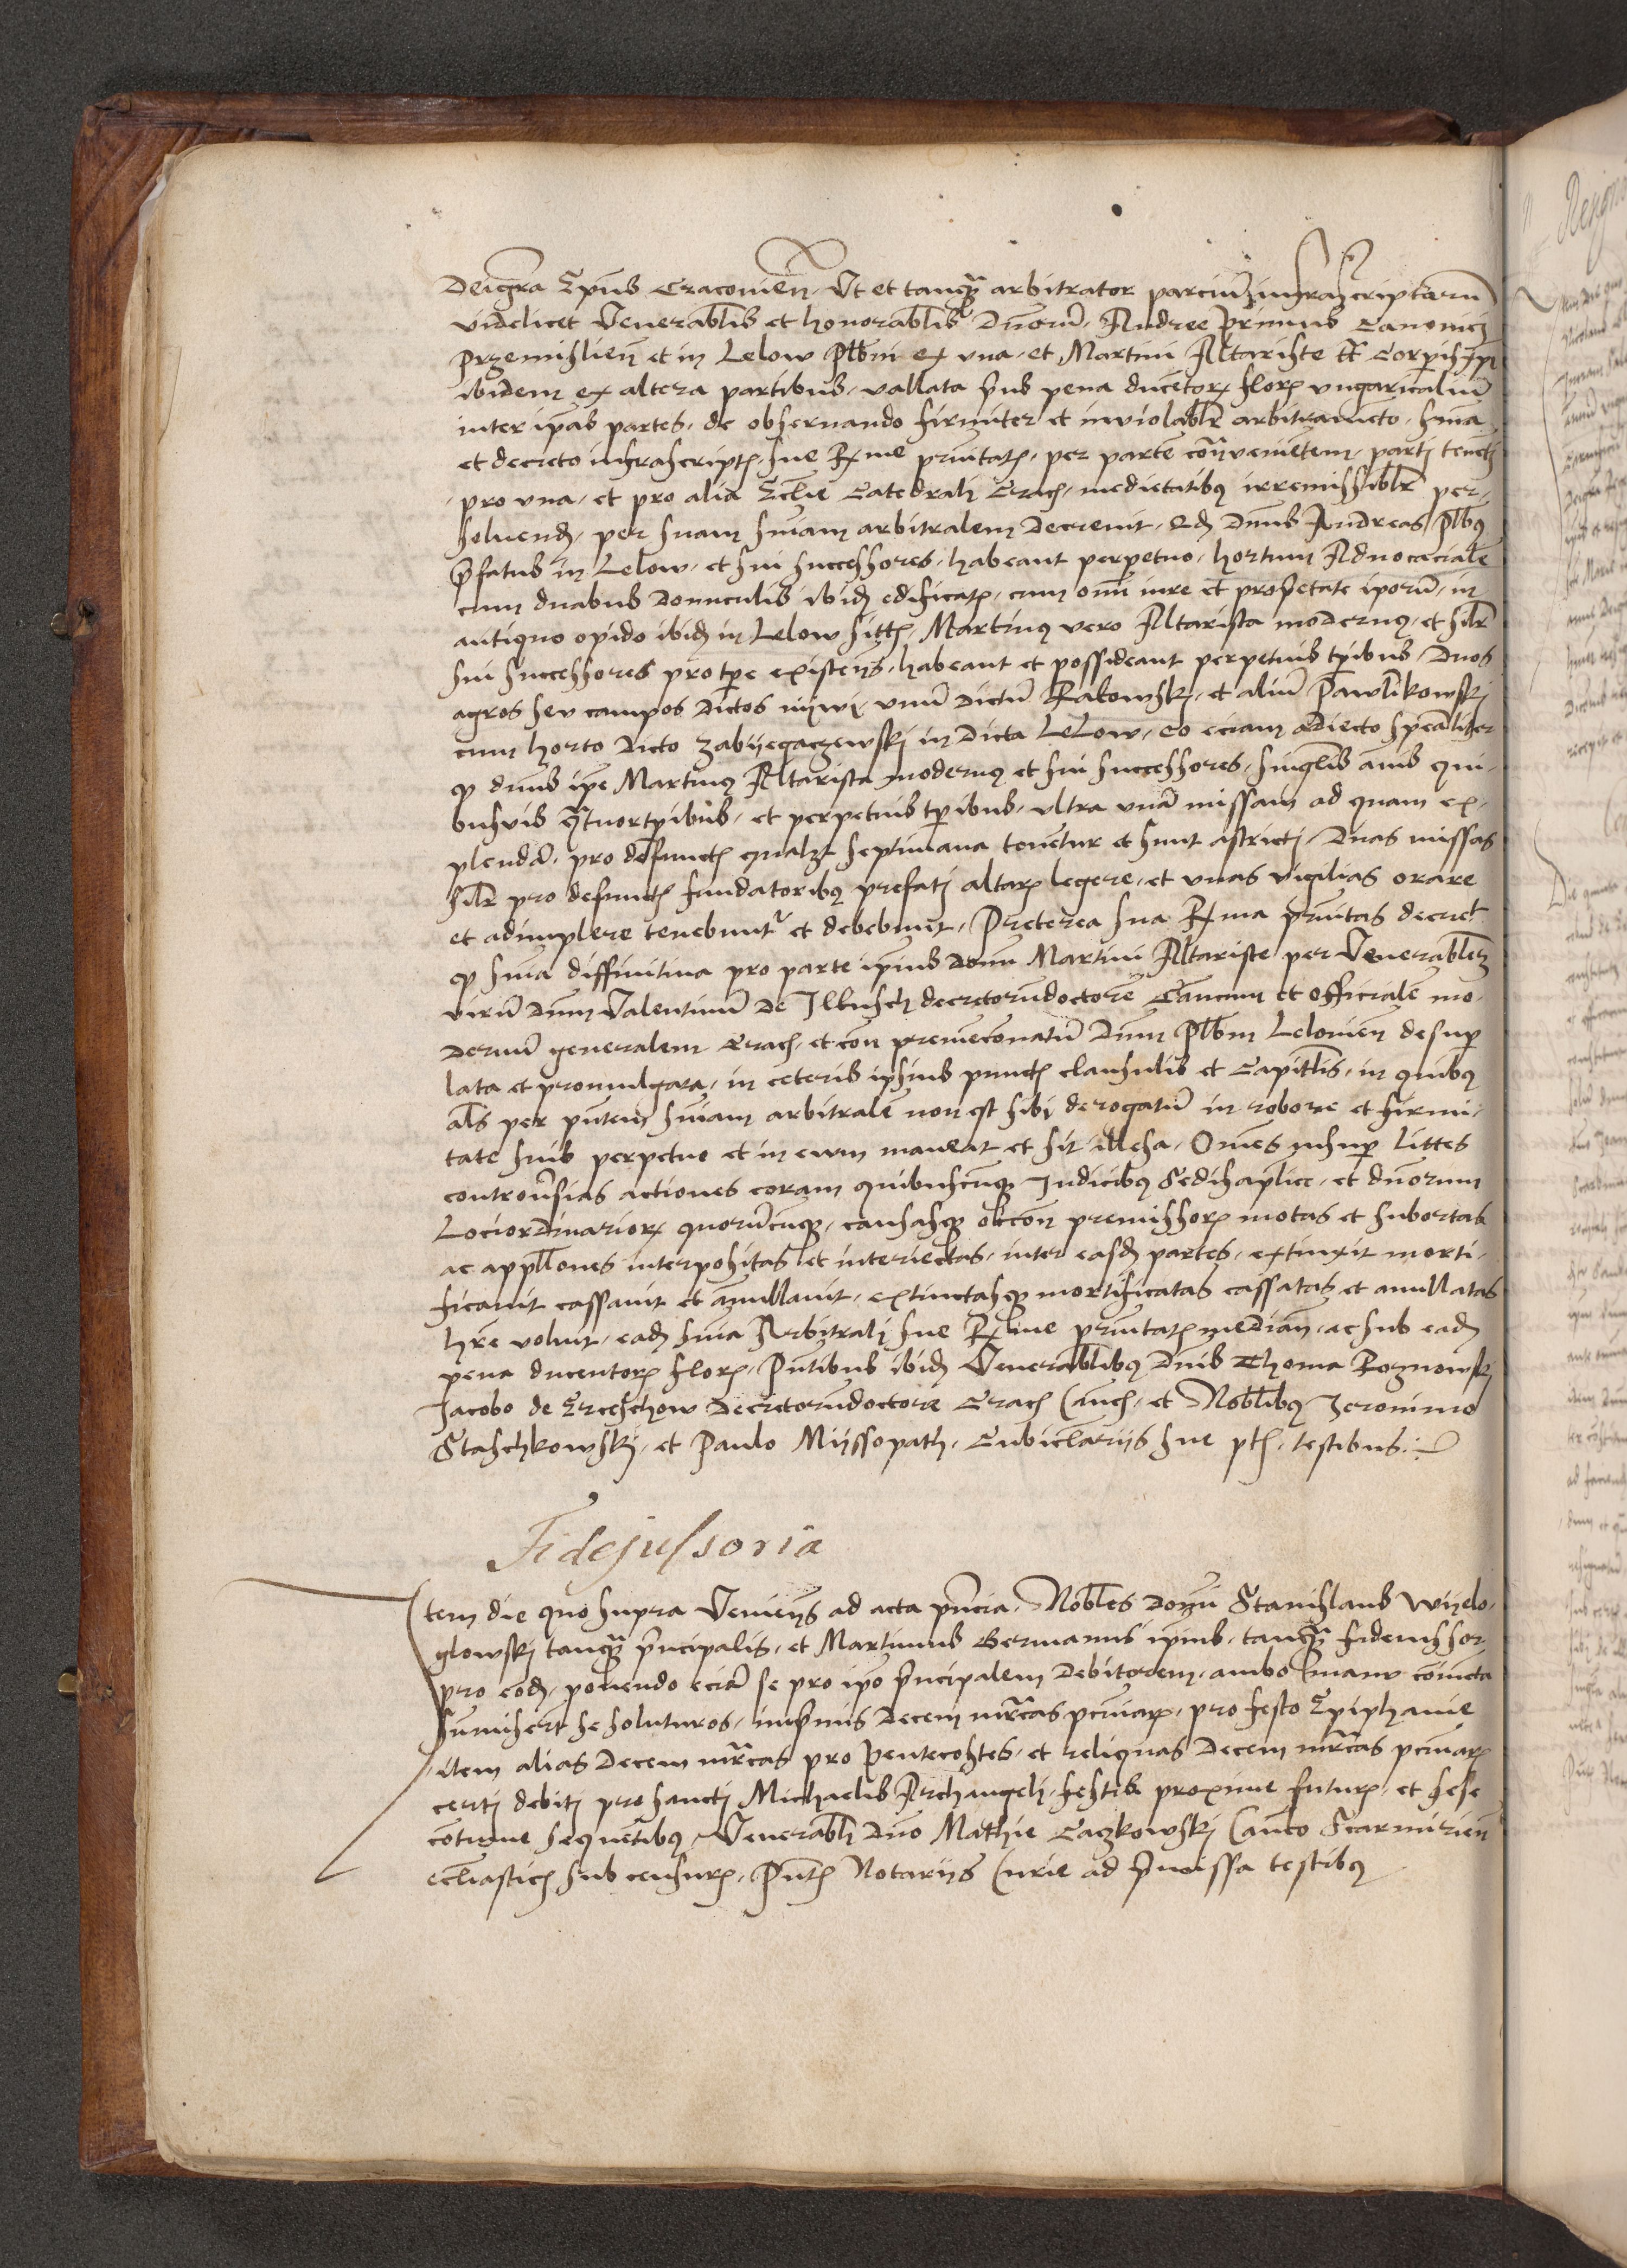 Dei gr̃a Ep̃us Cracovieñ Vt et tanq̃ȝ arbitrator parciũ infrascriptarum
videlicet Venerabl̃ib et honorabl̃ib Dñorũ Andree Primus Canonici
Przemislieñ et in Lelow pl̃bni ex vna et Martini Altariste tt̃ Corp̃is xp̃i
ibidem ex altera partibus vallata p̃us pena ducẽtorꝝ florꝝ vngaricaliũ
inter ip̃as partes de observando firmiter et inviolabl̃r arbitramẽto sñia
et decreto infrascriptꝭ sue Rx̃me pr̃nitatꝭ per partẽ cõtraveniẽtem parti tenẽti
pro vna et pro alia Ecl̃ie Catedrali Cracꝭ medietatibꝫ irremissibl̃r per
solvendꝭ per suam sñiam arbitralem Decrevit Qđ Dñus Andreas pl̃bꝫ
p̃fatus in Lelow et sui successores habeant perpetuo hortum Advocaciale
cum duabus Domunculis ibidꝭ edificatꝭ cum om̃i iure et prop̃etate ip̃orũ in
antiquo opido ibidꝭ in Lelow sittꝭ Martinꝫ vero Altarista modernꝫ et sil̃r
sui successores pro tp̃e existeñs habeant et possideant perpetuis tp̃ibus Duos
agros seu campos Dictos nijwi vnũ dictũ Rakowski et aliũ Pawlikowski
cum horto Dicto Zabijegaczewski in Dicta Lelow eo eciam adiecto sp̃ealiter
qꝫ dñus ip̃e Martinꝫ Altarista modernꝫ et sui successores singl̃is anis qui
busvis q̃tuor tp̃ibus et perpetuis tp̃ibus vltra vnã missam ad quam ex
plendã pro defunctꝭ qualꝫt septimana tenẽtur et sunt astricti Duas missas
sil̃r pro defunctꝭ fundatoribꝫ prefati altarꝭ legere et vnas vigilias orare
et adimplere tenebunt̃ et debebunt Preterea sua Rx̃ma pr̃nitas decrevit
qꝫ sñia diffinitiva pro parte ip̃ius Dom̃i Martini Altariste per Venerabl̃em
virũ Dñm Valentinũ De Ilkusch decretorum doctorẽ Cancum et officialẽ mo
dernũ generalem Cracꝭ et con premẽconatũ Dñm pl̃bm Lelovieñ desup̃
lata et promulgata in ceteris ipsius punctꝭ clausulis et Capitl̃is in quibꝫ
al̃s per p̃ntem sñiam arbitralẽ non est sibi derogatũ in robore et firmi
tate suis perpetuo et in evum maneat et sit illesa Om̃es insup̃ littes
controv̾sias actiones coram quibuscũqꝫ Iudicibꝫ Sedis ap̃lice et dñorum
Loci ordinariorꝝ quorũcũqꝫ causasqꝫ occõn premissorꝝ motas et subortas
ac appll̃ones interpositas et interiectas inter easdꝭ partes extinxit morti
ficavit cassavit et annullavit extinctasqꝫ mortificatas cassatas et anullatas
hr̃e voluit eadꝭ sñia Arbitrali sue Rx̃me pr̃nitatꝭ mediañ ac sub eadꝭ
pena ducentorꝝ florꝝ Pñtibus ibidꝭ Venerabl̃ibꝫ Dñis Thoma Roznowski
Jacobo de Erceschow Decretorum doctore Cracꝭ Cancꝭ et Nobl̃ibꝫ Jeronimo
Staschkowski et Paulo Mijssopath Cubiclariis sue ptꝭ testibus
Fidejussoria
Item die quo supra Venieñs ad acta p̃ncia Nobl̃es Domĩ Stanislaus Wijelo
glowski tanq̃ȝ p̃ncipalis et Martinus Germanus ip̃ius tanq̃ȝ fideiussor
pro eodꝭ ponendo eciã se pro ip̃o p̃ncipalem debitorem ambo manu cõiuncta
submiserũt se soluturos inp̃mis Decem mr̃cas pcuniarꝝ pro festo Epiphanie
item alias Decem mr̃cas pro Pentecostes et reliquas Decem mr̃cas pcuniarꝝ
certi debiti pro sancti Michaelis Archangeli festis proxime futurꝭ et sese
cõtinue sequẽtibꝫ Venerabl̃i Dño Mathie Caczkowski Cañco Scarmirieñ
ecl̃iasticꝭ sub censurꝭ Pñtꝭ Notariis Curie ad p̃missa testibꝫ